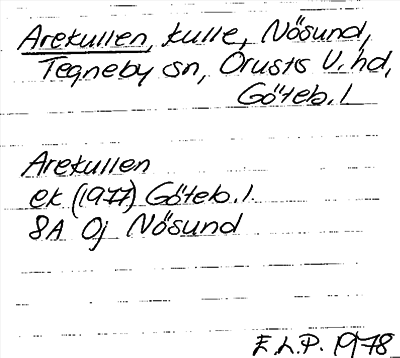 Arekullen, kulle, Nösund,
Tegneby sn, Orusts V. hd,
Göteb. l
Arekullen
ek (1977) Göteb. l.
8A 0j Nösund
E.L.P. 1978